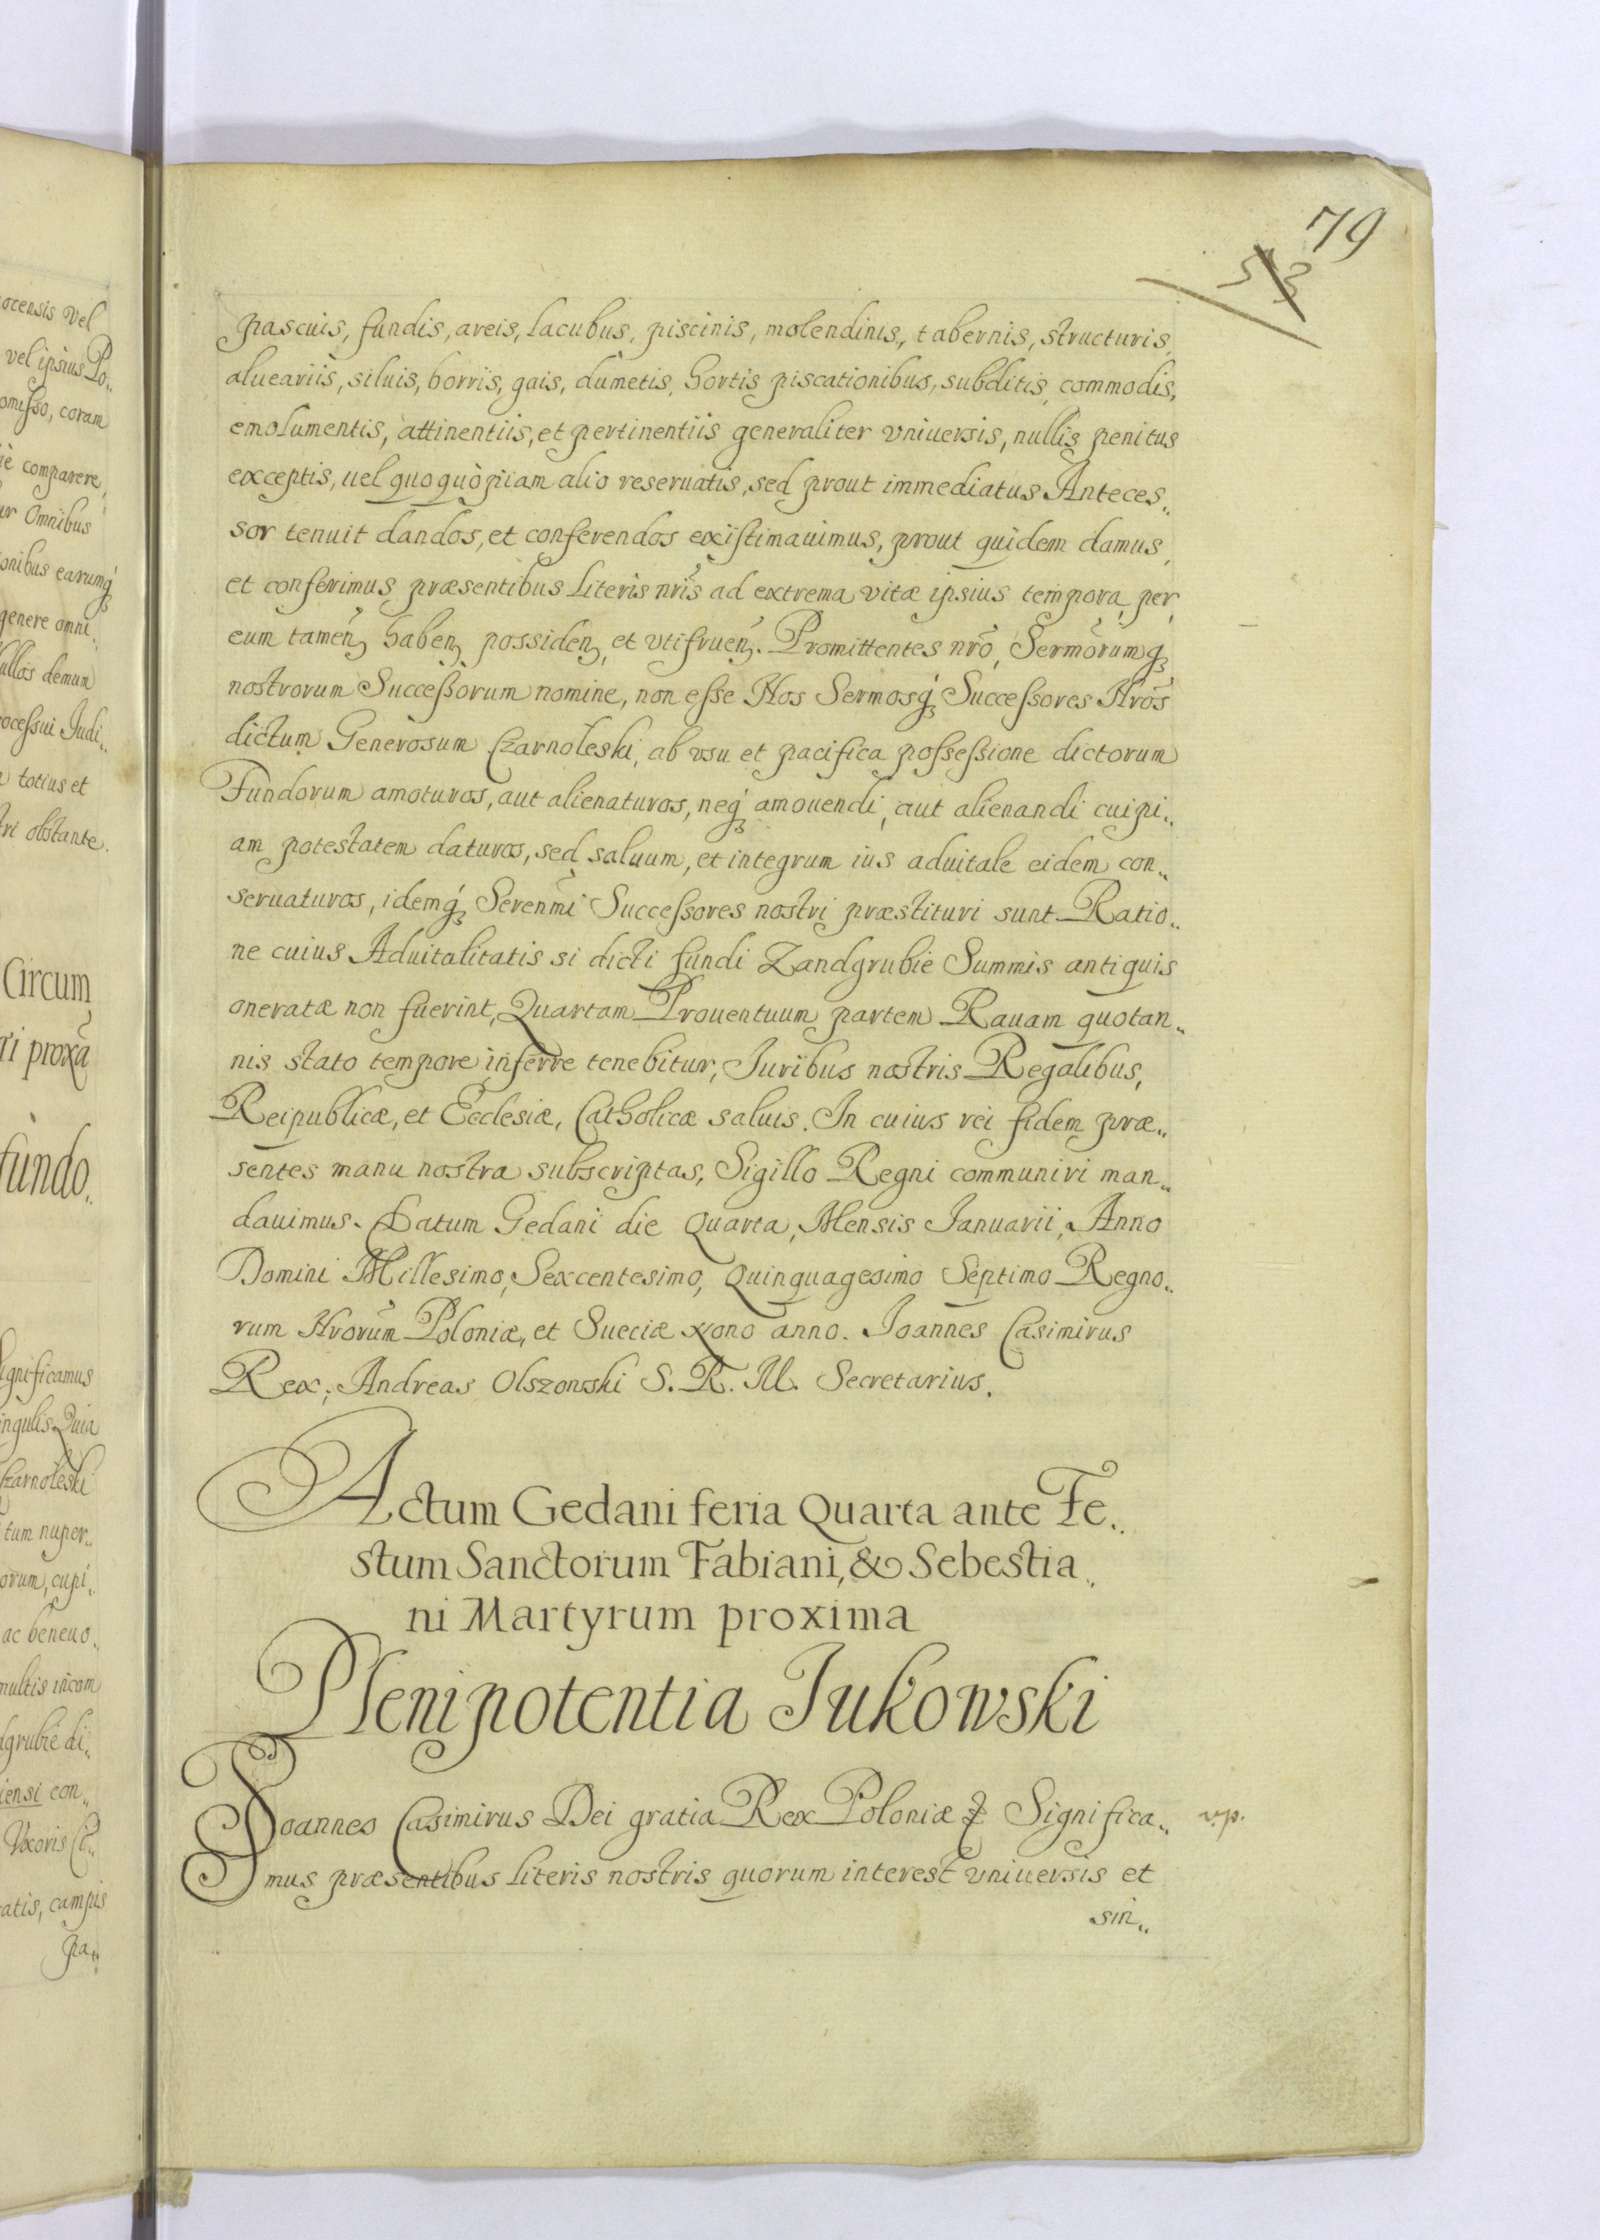 79
53
pascuis, fundis, areis, lacubus, piscinis, molendinis, tabernis, structuris,
alueariis, siluis, borris, gais, dumetis, hortis piscationibus, subditis, commodis,
emolumentis, attinentiis, et pertinentiis generaliter vniuersis, nullis penitus
exceptis, uel quoquopiam alio reseruatis, sed prout immediatus Anteces„
sor tenuit dandos, et conferendos existimauimus, prout quidem damus,
et conferimus præsentibus Literis nr̃is ad extrema vitæ ipsius tempora, per
eum tamen haben possiden, et vtifruen. Promittentes nr̃o, Sermõrumq́
nostrorum Successorum nomine, non esse Nos Sermosq́ Successores Nr̃os
dictum Generosum Czarnoleski, ab vsu et pacifica possessione dictorum
Fundorum amoturos, aut alienaturos, neq́ amouendi, aut alienandi cuipi„
am potestatem daturos, sed saluum, et integrum ius aduitale eidem con„
seruaturos, idemq́ Serenm̃i Successores nostri præstituri sunt Ratio„
ne cuius Aduitalitatis si dicti fundi Zandgrubie Summis antiquis
oneratæ non fuerint, Quartam Prouentuum partem Rauam quotan„
nis stato tempore inferre tenebitur, Iuribus nostris Regalibus,
Reipublicæ, et Ecclesiæ, Catholicæ saluis. In cuius rei fidem præ„
sentes manu nostra subscriptas, Sigillo Regni communiri man„
dauimus. Datum Gedani die Quarta, Mensis Ianuarii, Anno
Domini Millesimo, Sexcentesimo, Quinquagesimo Septimo Regno„
rum Nrorum̃ Poloniæ, et Sueciæ Nono anno. Ioannes Casimirus
Rex; Andreas Olszowski S. R. M. Secretarius.
Actum Gedani feria Quarta ante Fe„
stum Sanctorum Fabiani, & Sebestia„
ni Martyrum proxima
Plenipotentia Iukowski
Ioannes Casimirus Dei gratia Rex Poloniæ & Significa„
mus præsentibus literis nostris quorum interest vniuersis et
sin„